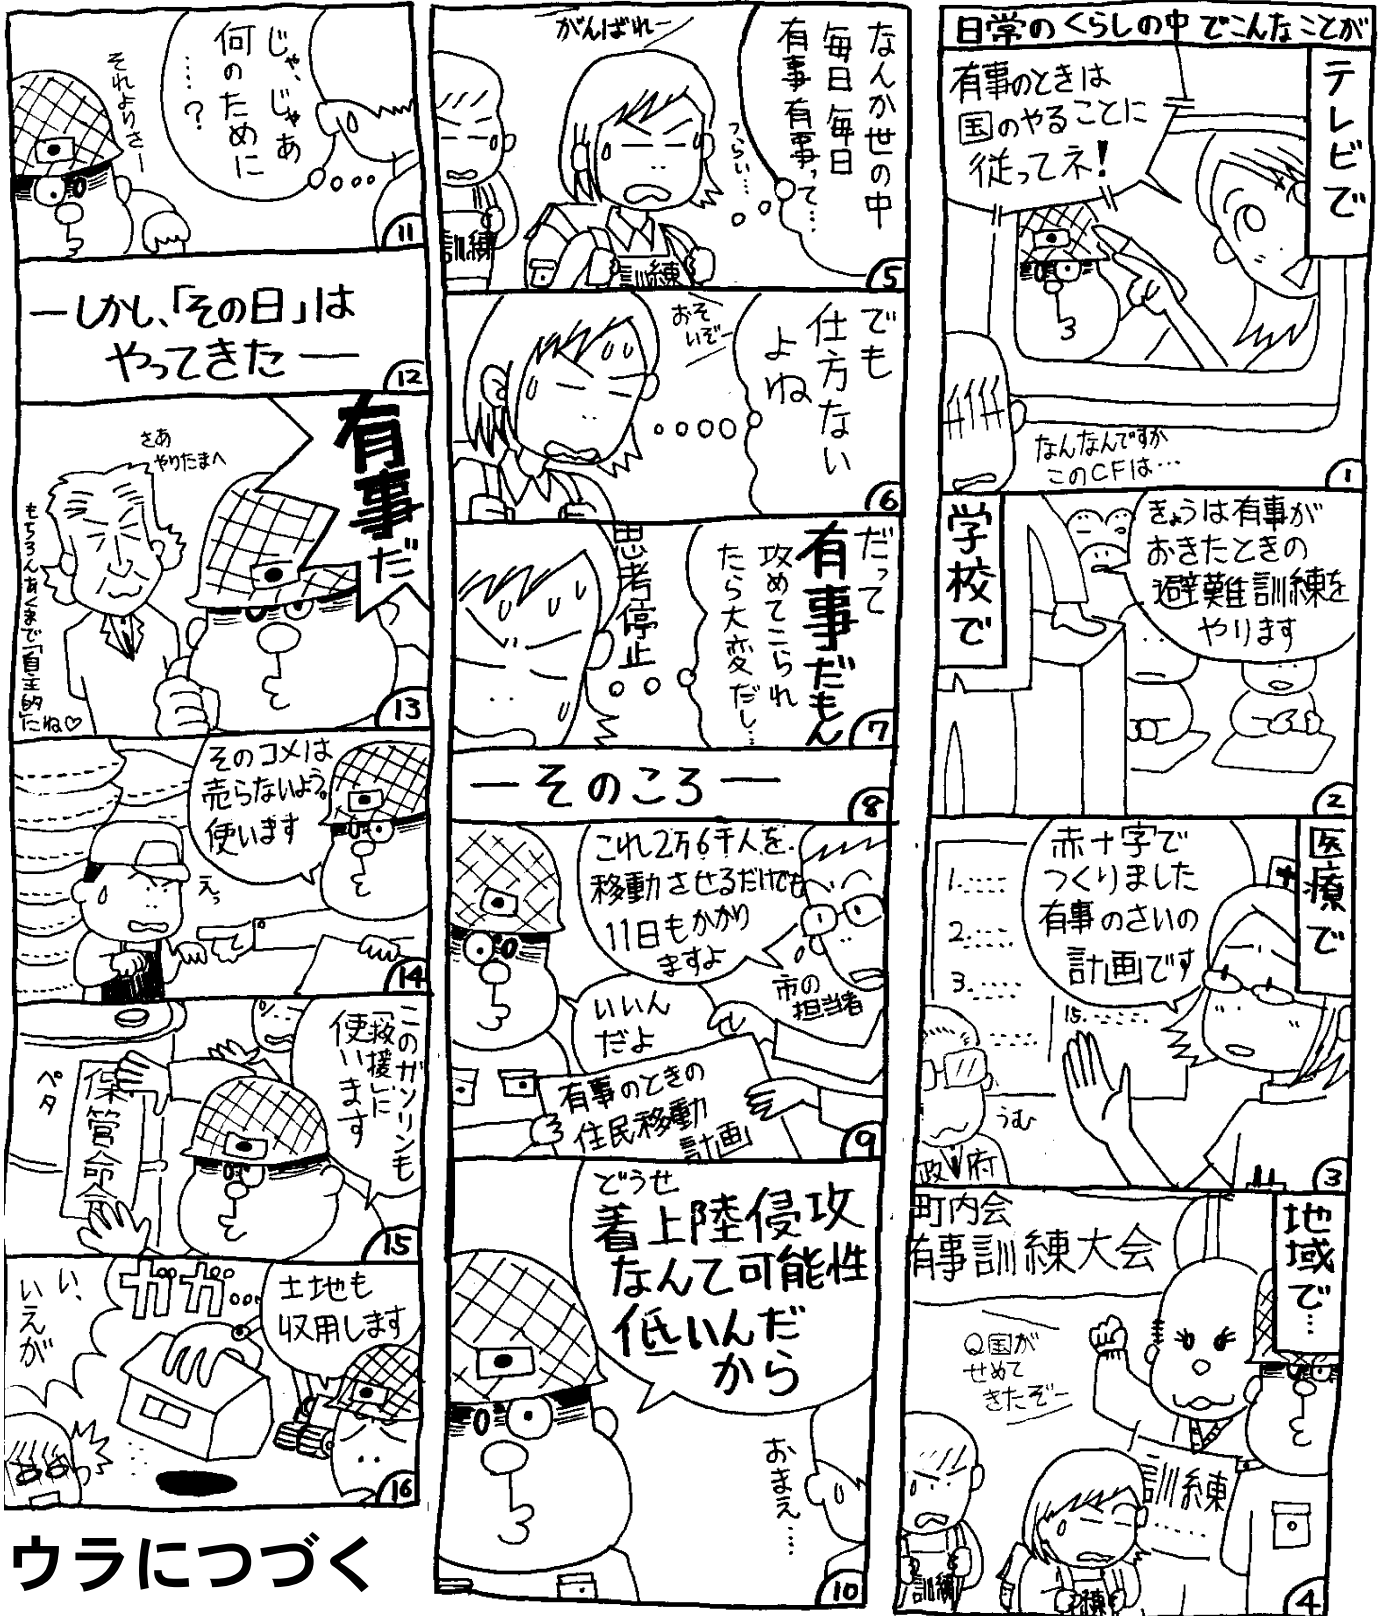 日常のくらしの中でこんなことが
テレビで
有事のときは
国のやることに
従ってネ!
なんなんですか
このCFは…
1
学校で
きょうは有事が
おきたときの
避難訓練を
やります
2
医療で
赤十字で
つくりました
有事のさいの
計画です
1.……
2.……
3.……
15.……
うむ
政府
3
地域で…
町内会
有事訓練大会
Q国が
せめて
きたぞー
訓練
訓練
訓練
4
なんか世の中
毎日毎日
有事有事って…
つらい…
がんばれー
訓練
訓練
5
でも
仕方ない
よね
おそ
いぞー
6
だって
有事だもん
攻めてこられ
たら大変だし…
思考停止
7
―そのころ―
8
これ2万6千人を
移動させるだけでも
11日もかかり
ますよ
市の
担当者
いいん
だよ
有事のときの
住民移動
計画
9
どうせ
着上陸侵攻
なんて可能性
低いんだ
から
おまえ…
10
じゃ、じゃあ
何のために
……?
それよりさー
11
―しかし、「その日」は
やってきた―
12
有事だ
さあ
やりたまへ
もちろんあくまで「自主的」にね♡
13
そのコメは
売らないよう。
使います
えっ
14
このガソリンも
「救援」に
使います
保管命令
ペタ
15
土地も
収用します
ガガ…
い、
いえが
16
ウラにつづく